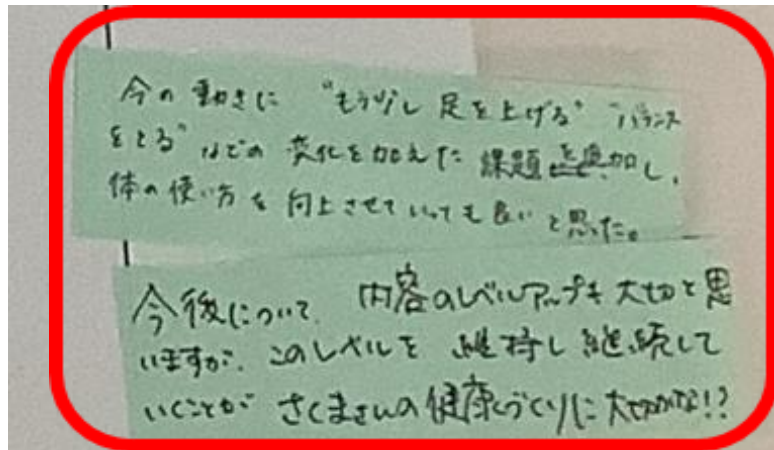 今の動きに “もう少し 足を上げる” “バランス
をとる” などの 変化を加えた 課題を追加し、
体の使い方を 向上させていっても良いと思った。
今後について、内容のレベルアップも大切と思
いますが、このレベルを 維持し継続して
いくことが さくまさんの健康づくりに大切かな!?